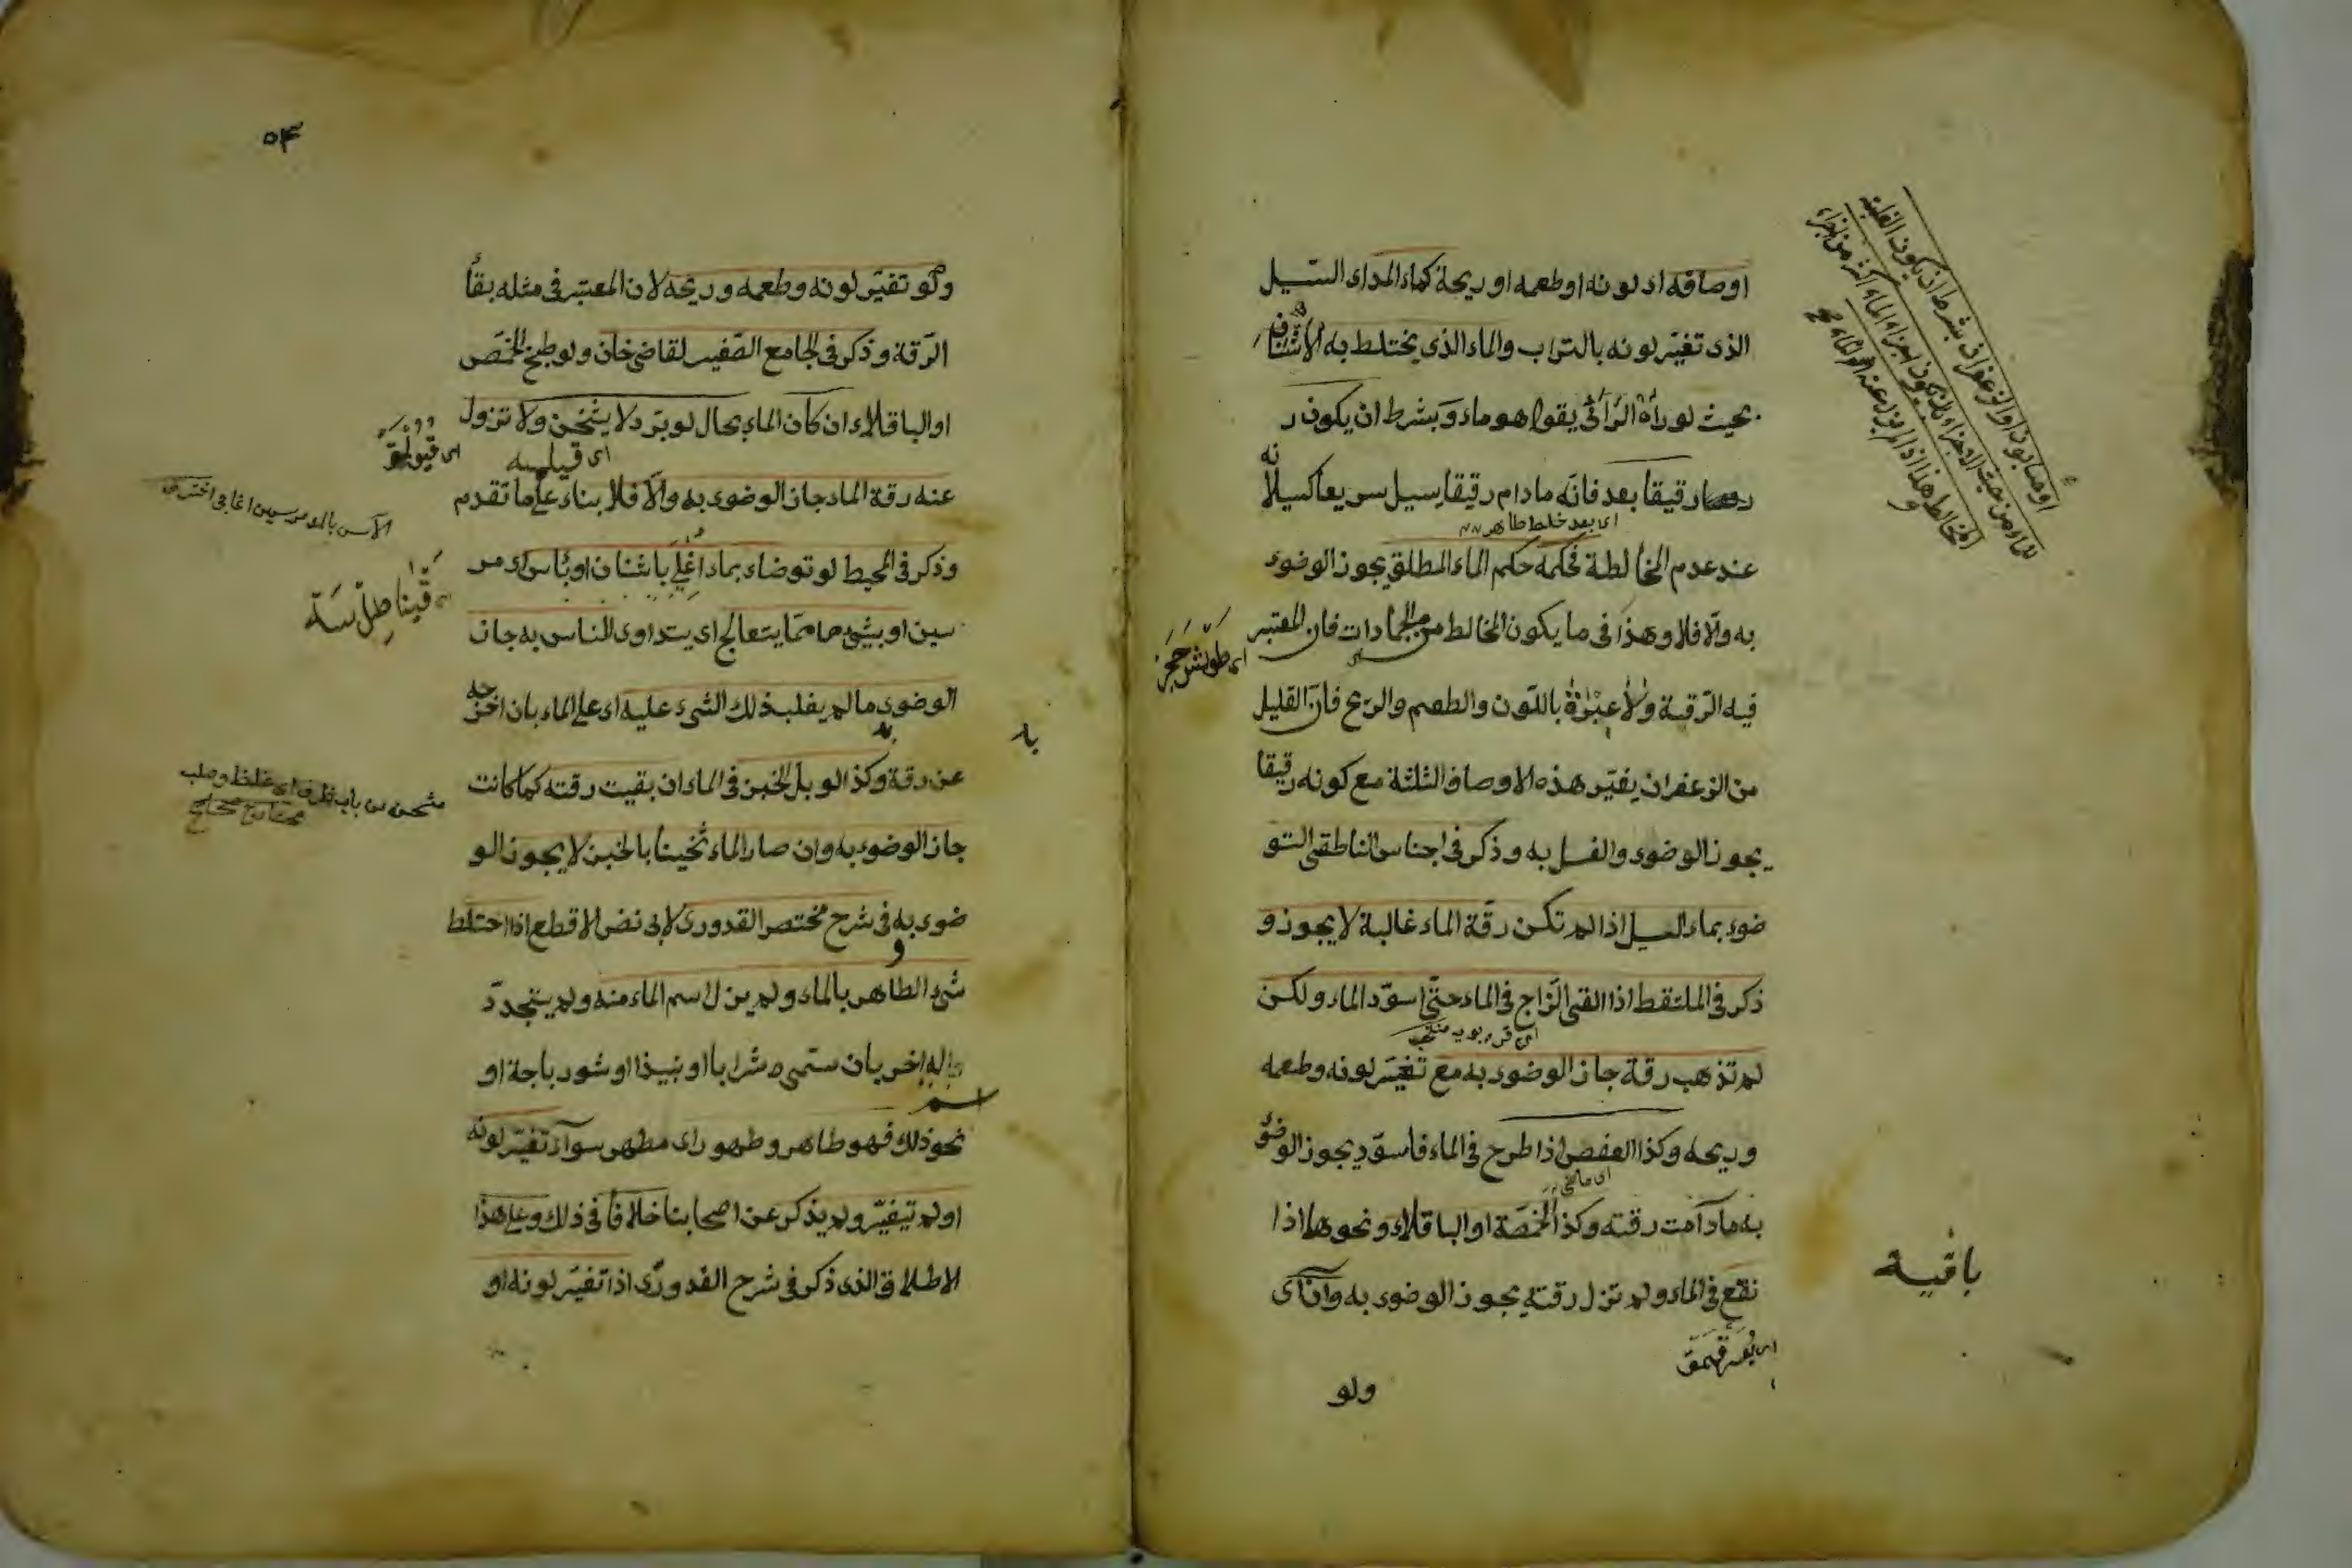 اوصافه اى لونه او طعمه او ريحة كماء المد اى السّيل
الذى تغيّر لونه بالتراب والماء الذى يختلط به الاشنان
بحيث لو رآه الرّائى يقول هو ماء وبشرط ان يكون ر
رقيقا بعد فانّه مادام رقيقا يسيل سريعا كسيلانه
اى بعد خلط طاهر
عند عدم المخالطة فحكمه حكم الماء المطلق يجوز الوضوء
به والّا فلا وهذا فى ما يكون المخالط من الجمادات فان المعتبر
فيه الرّقية ولا عبرة باللّون والطعم والرّيح فانّ القليل
من الزعفران يغيّر هذه الاوصاف الثلثة مع كونه رقيقا
يجوز الوضوء والغسل به وذكر فى اجناس الناطقى التو
ضوء بماء السيل اذا لم تكن رقّة الماء غالبة لا يجوز و
ذكر فى الملتقط اذا القى الزّاج فى الماء حتّى اسودّ الماء ولكن
لم تذهب رقة جاز الوضوء به مع تغيّر لونه وطعمه
وريحه وكذا العفص اذا طرح فى الماء فاسودّ يجوز الوضوء
به مادامت رقته وكذا الحمّصة او الباقلاء ونحوها اذا
نقع فى الماء ولم تزل رقته يجوز الوضوء به وان اى
باقية
ولو
٥٤
ولو تغيّر لونه وطعمه وريحه لان المعتبر فى مثله بقأ
الرّقة وذكر فى الجامع الصّغير لقاضى خان ولو طبخ الحمّص
او الباقلاء ان كان الماء بحال لو برّد لا يثخن ولا تزول
عنه رقة الماء جاز الوضوء به والّا فلا بناء على ما تقدم
وذكر فى المحيط لو توضاء بماء اغلى باشنان او بآس اى مر
سين او بشئ مما يتعالج اى يتداوى الناس به جاز
الوضوء ما لم يغلب ذلك الشئ عليه اى على الماء بان اخرجه
عن رقة وكذا لو بلّ الخبز فى الماء ان بقيت رقته كما كانت
جاز الوضوء به وان صار الماء ثخينا بالخبز لا يجوز الو
ضوء به فى شرح مختصر القدورى لابى نصر الاقطع اذا اختلط
شئ الطاهر بالماء ولم يزل اسم الماء منه ولم يتجدّد
له اسم اخر بان سمّى شرابا او نبيذا او شورباجة او
نحو ذلك فهو طاهر وطهور اى مطهر سوآء تغيّر لونه
او لم يتغيّر ولم يذكر عن اصحابنا خلافا فى ذلك وعلى هذا
الاطلاق الذى ذكر فى شرح القدورى اذا تغيّر لونه او